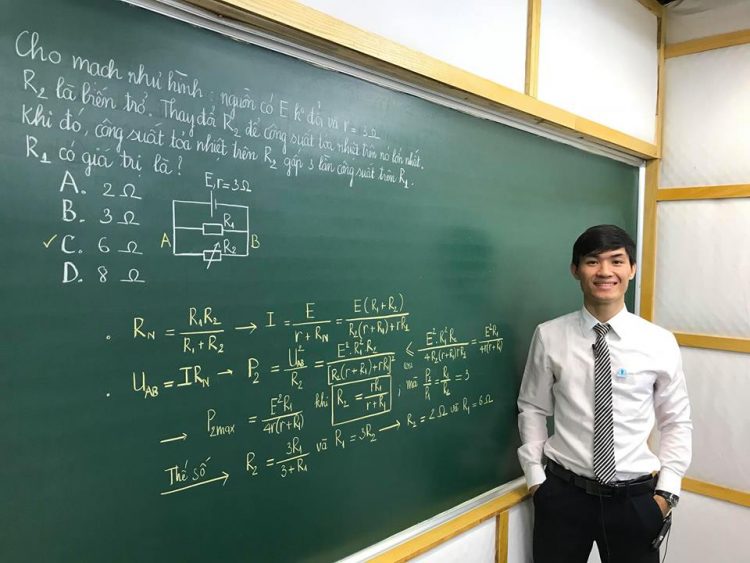 Cho mạch như hình: nguồn có E kᵒ đổi và r = 3Ω
R₂ là biến trở. Thay đổi R₂ để công suất tỏa nhiệt trên nó lớn nhất.
Khi đó, công suất tỏa nhiệt trên R₂ gấp 3 lần công suất trên R₁.
R₁ có giá trị là?
A. 2 Ω
B. 3 Ω
✓ C. 6 Ω
D. 8 Ω
E, r = 3Ω
R₁
A R₂ B
. R_N = R₁R₂/(R₁+R₂) → I = E/(r+R_N) = E(R₁+R₂)/(R₂(r+R₁)+rR₁)
. U_AB = IR_N → P₂ = U²_AB/R₂ = E².R₁²R₂/[R₂(r+R₁)+rR₁]² ≤ E².R₁²R₂/(4R₂(r+R₁)rR₁) = E²R₁/(4r(r+R₁))
→ P₂max = E²R₁/(4r(r+R₁)) khi R₂ = rR₁/(r+R₁) ; mà P₂/P₁ = R₁/R₂ = 3
Thế số → R₂ = 3R₁/(3+R₁) và R₁ = 3R₂ → R₂ = 2Ω và R₁ = 6Ω